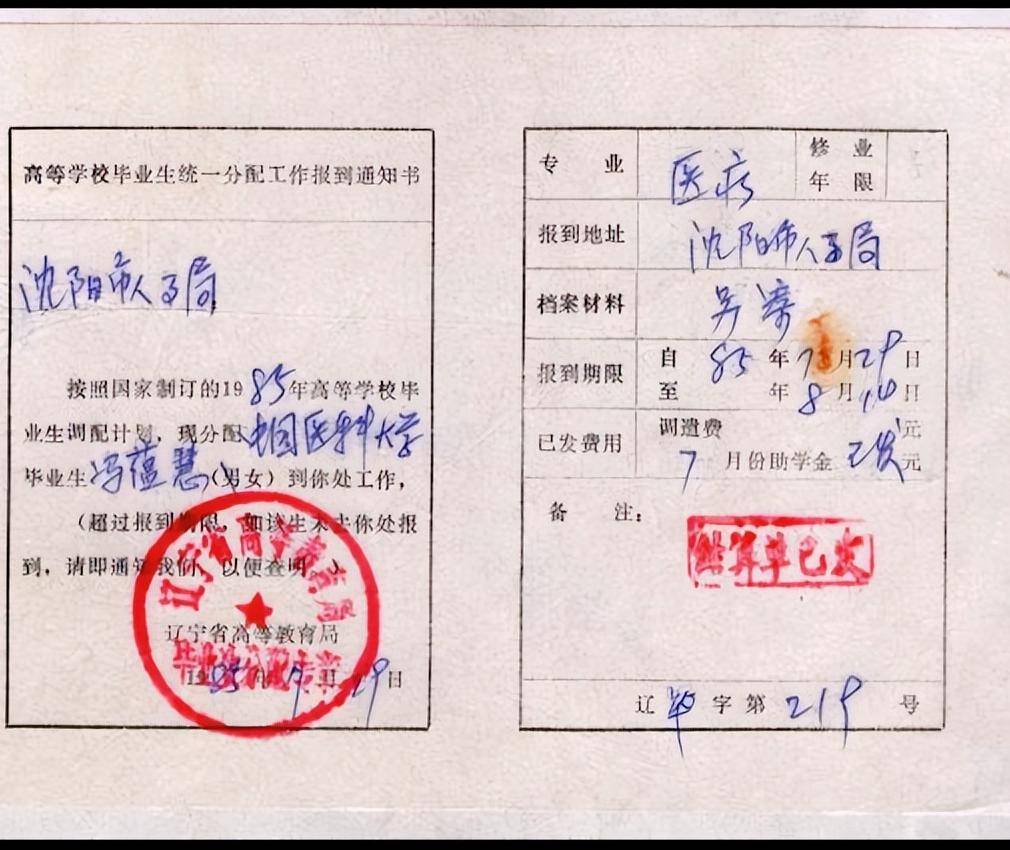 高等学校毕业生统一分配工作报到通知书
沈阳市人事局
按照国家制订的1985年高等学校毕
业生调配计划,现分配中国医科大学
毕业生冯蕴慧(男女)到你处工作,
(超过报到期限,如该生未去你处报
到,请即通知我们,以便查明。)
辽宁省高等教育局
1985年7月29日
辽宁省高等教育局
专 业 医疗 修 业
年 限
报到地址 沈阳市人事局
档案材料 另寄
报到期限 自 85年7月29日
至 年8月14日
已发费用 调遣费 元
7月份助学金 已发元
备 注:
结算单已发
辽毕字第219号